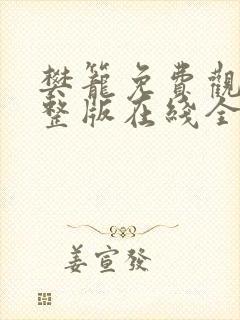 樊籠免費觀
整版在綫全
姜宣發